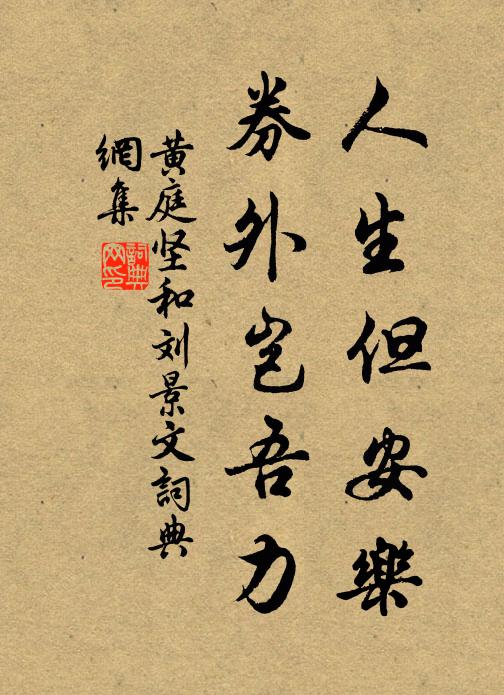 人生但安樂
券外岂吾力
黄庭坚和刘景文詞典
網集
詞典
网印